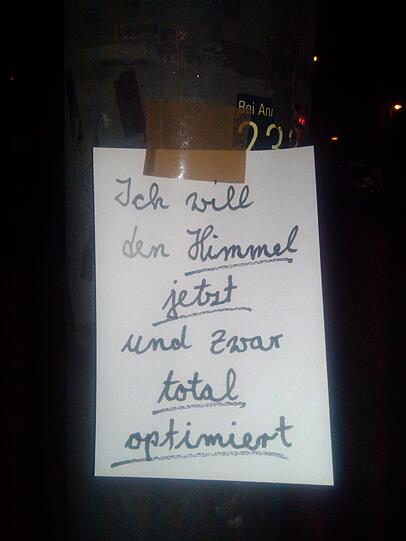 Bei Anr
23
Ich will
den Himmel
jetzt
und zwar
total
optimiert